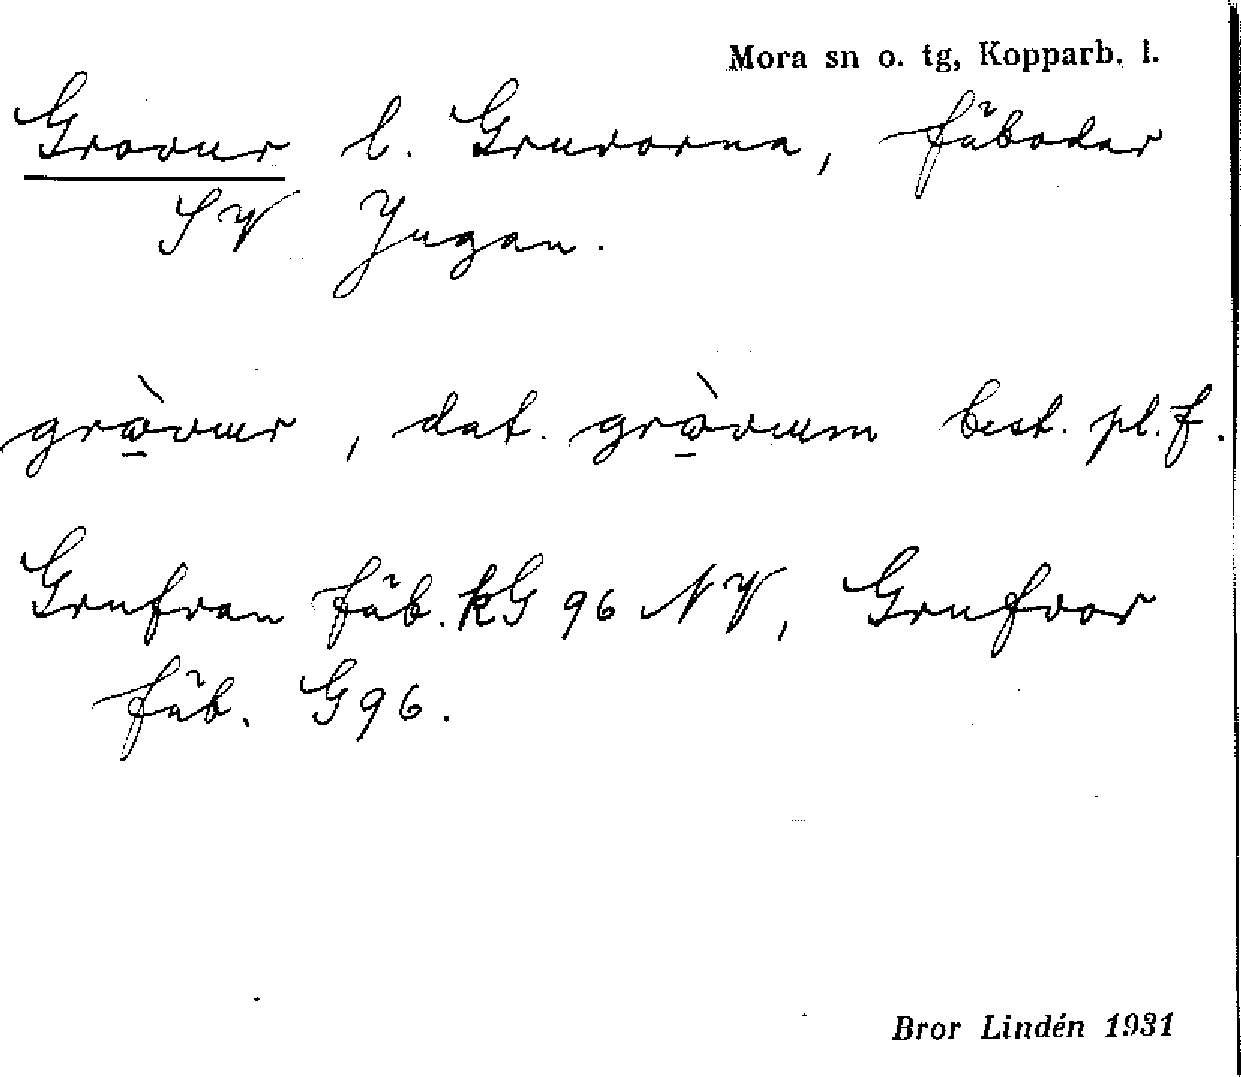 Mora sn o. tg, Kopparb. l.
Grovur l. Gruvorna, fäbodar
SV Jugan.
grò̠vur, dat. grò̠vum best. pl. f.
Grufvan fäb. kG 96 NV, Grufvor
fäb. G 96.
Bror Lindén 1931